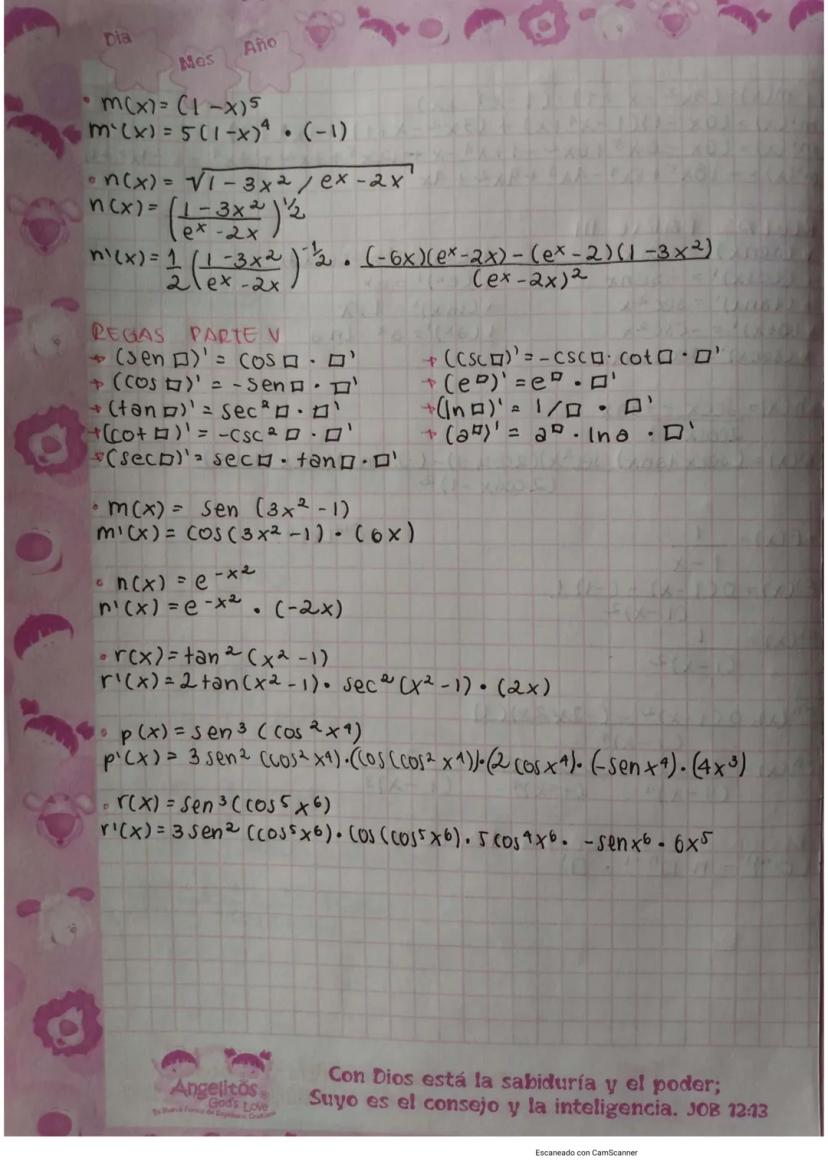 Dia
Mes
Año
• m(x) = (1 - x)⁵
m'(x) = 5(1-x)⁴ • (-1)
• n(x) = √1 - 3x² / eˣ - 2x
n(x) = (1 - 3x² / eˣ - 2x)^½
n'(x) = 1/2 (1 - 3x² / eˣ - 2x)^-½ • (-6x)(eˣ - 2x) - (eˣ - 2)(1 - 3x²) / (eˣ - 2x)²
REGAS PARTE V
+ (sen □)' = cos □ • □'
+ (cos □)' = - sen □ • □'
+ (tan □)' = sec² □ • □'
+ (cot □)' = -csc² □ • □'
+ (sec □)' = sec □ • tan □ • □'
+ (csc □)' = -csc □ • cot □ • □'
+ (e^□)' = e^□ • □'
+ (ln □)' = 1/□ • □'
+ (a^□)' = a^□ • ln a • □'
• m(x) = sen (3x² - 1)
m'(x) = cos (3x² - 1) • (6x)
• n(x) = e^-x²
n'(x) = e^-x² • (-2x)
• r(x) = tan² (x² - 1)
r'(x) = 2 tan (x² - 1) • sec² (x² - 1) • (2x)
• p(x) = sen³ (cos² x⁴)
p'(x) = 3 sen² (cos² x⁴) • (cos (cos² x⁴)) • (2 cos x⁴) • (-sen x⁴) • (4x³)
• r(x) = sen³ (cos⁵ x⁶)
r'(x) = 3 sen² (cos⁵ x⁶) • cos (cos⁵ x⁶) • 5 cos⁴ x⁶ • - sen x⁶ • 6x⁵
Angelitos
God's Love
Con Dios está la sabiduría y el poder;
Suyo es el consejo y la inteligencia. JOB 12:13
Escaneado con CamScanner